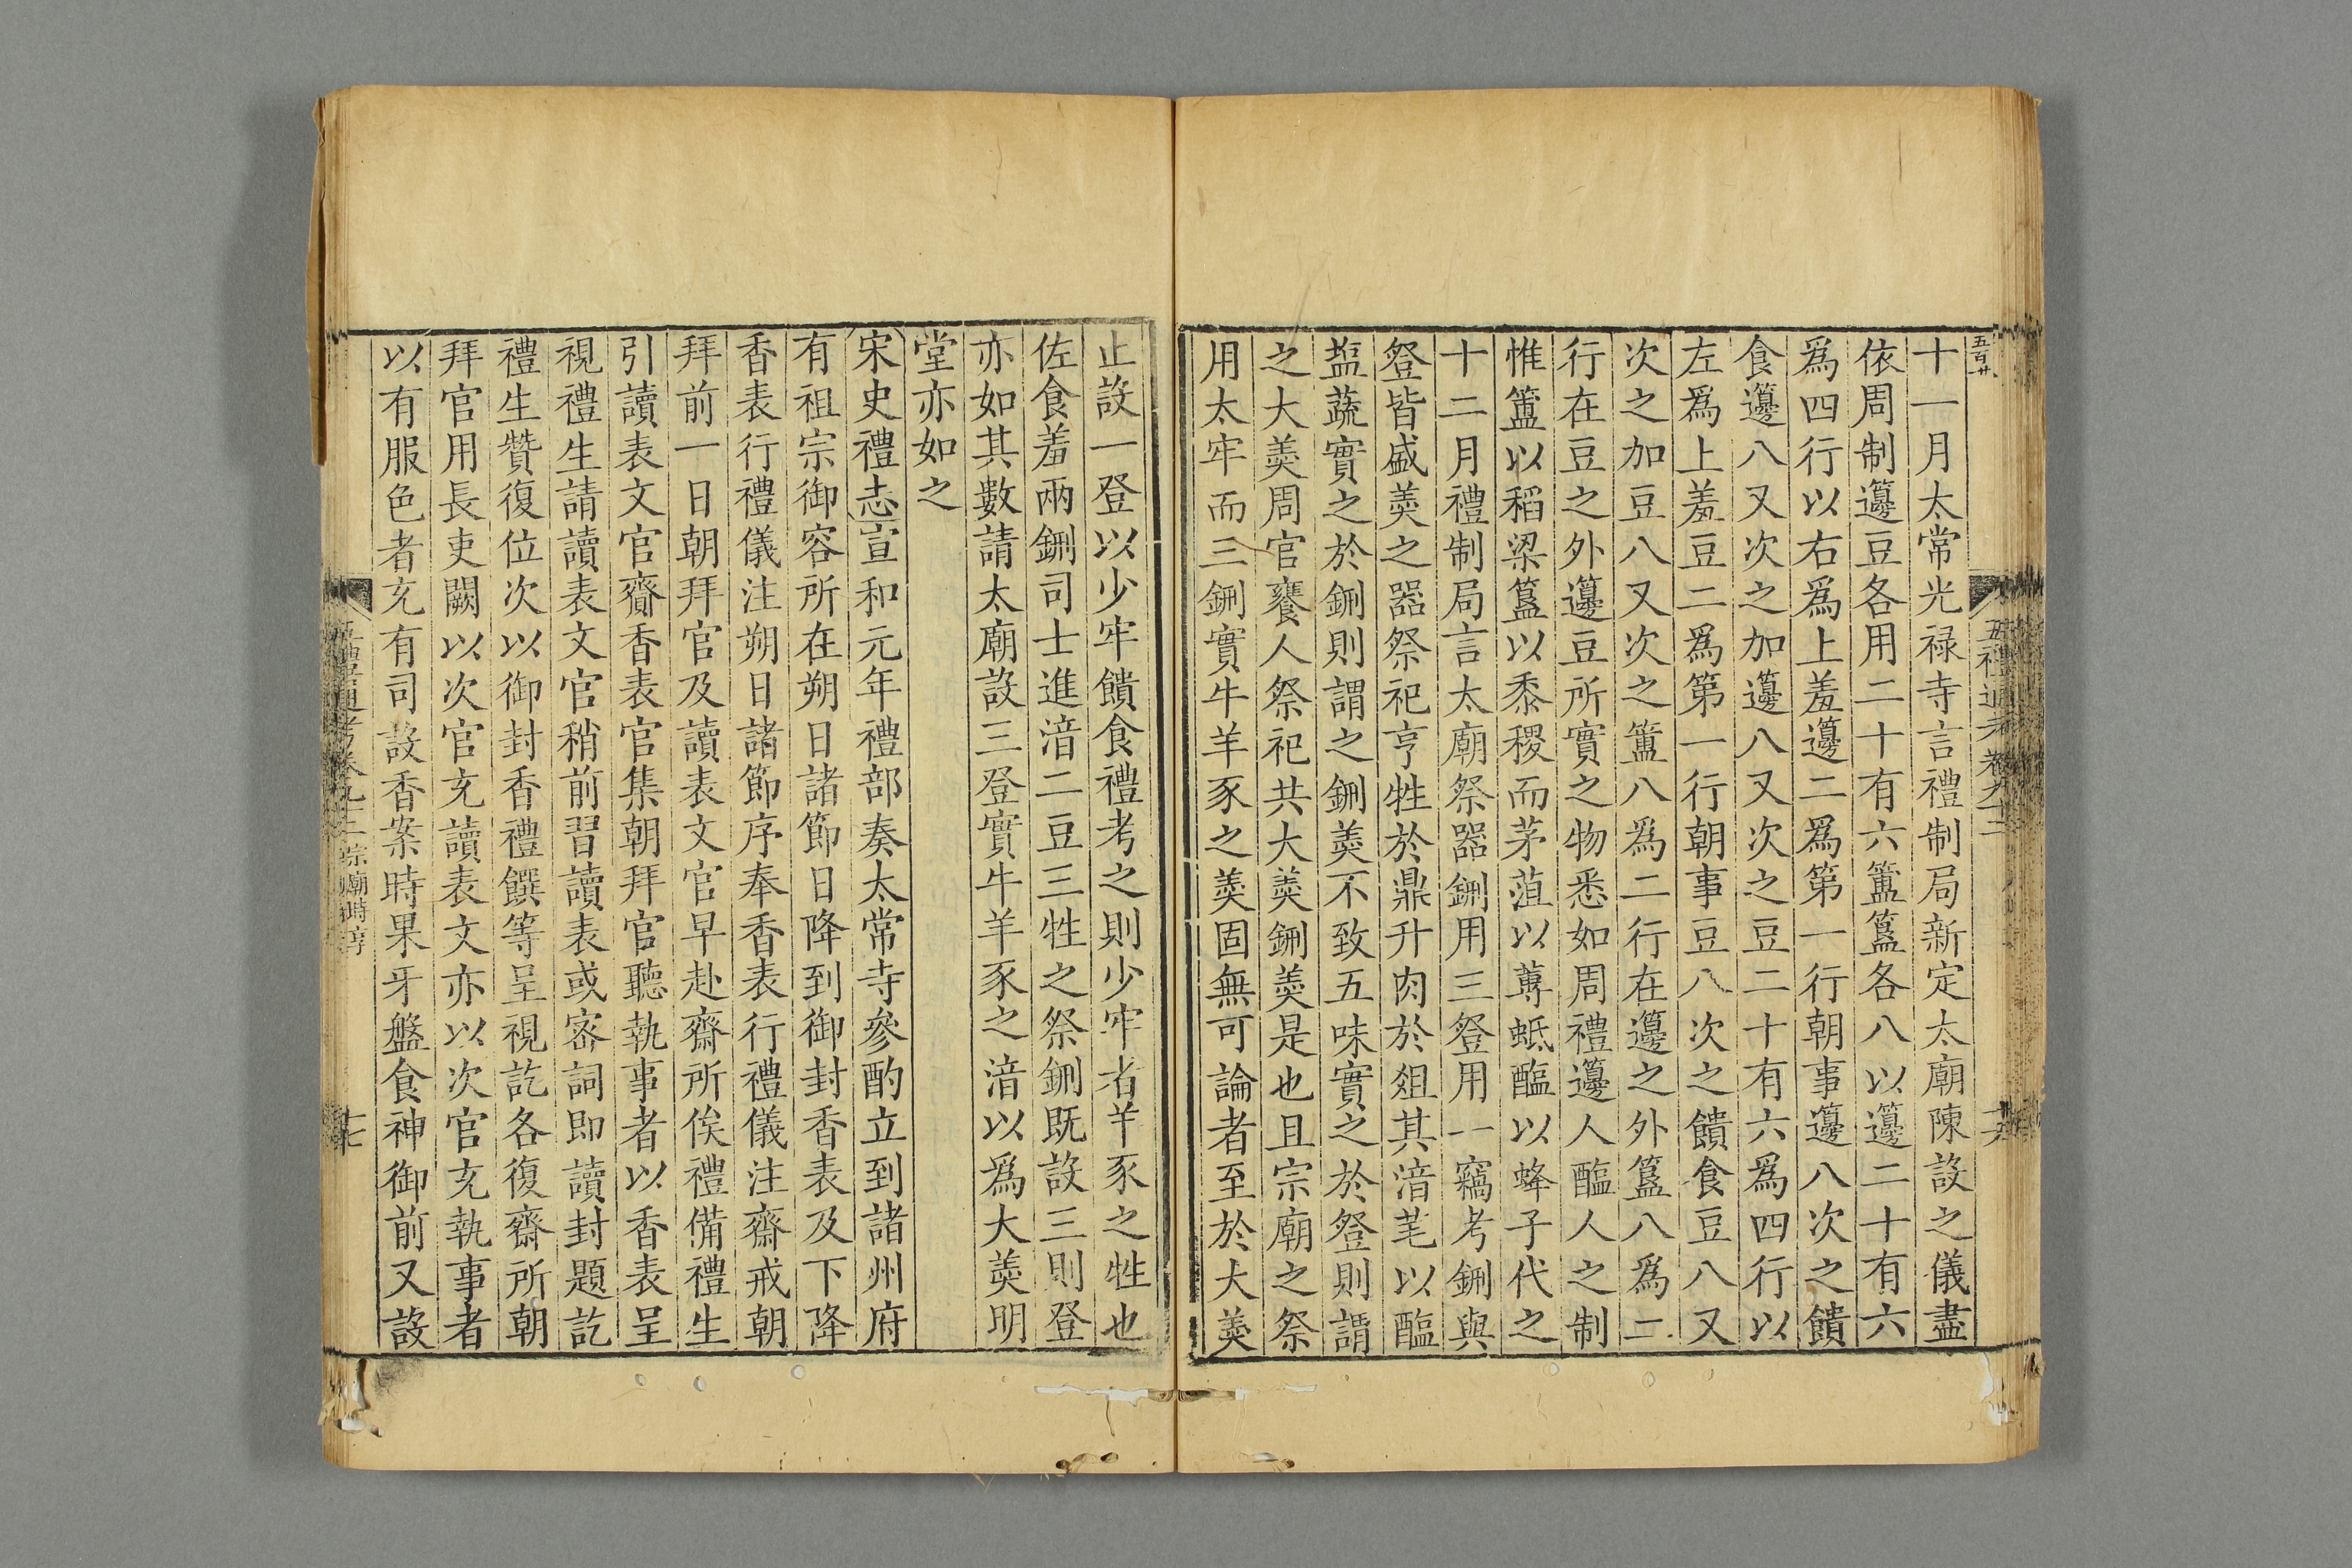 五百廿
五禮通考卷九十二
十一月太常光禄寺言禮制局新定太廟陳設之儀盡
依周制籩豆各用二十有六簠簋各八以籩二十有六
爲四行以右爲上羞籩二爲第一行朝事籩八次之饋
食籩八又次之加籩八又次之豆二十有六爲四行以
左爲上羞豆二爲第一行朝事豆八次之饋食豆八又
次之加豆八又次之簠八爲二行在籩之外簋八爲二
行在豆之外籩豆所實之物悉如周禮籩人醢人之制
惟簠以稻粱簋以黍稷而茅菹以蓴蚳醢以蜂子代之
十二月禮制局言太廟祭器鉶用三豋用一竊考鉶與
豋皆盛羮之器祭祀亨牲於鼎升肉於爼其湆芼以醢
塩蔬實之於鉶則謂之鉶羮不致五味實之於豋則謂
之大羮周官饔人祭祀共大羮鉶羮是也且宗廟之祭
用太牢而三鉶實牛羊豕之羮固無可論者至於大羮
止設一登以少牢饋食禮考之則少牢者羊豕之牲也
佐食羞兩鉶司士進湆二豆三牲之祭鉶既設三則登
亦如其數請太廟設三登實牛羊豕之湆以爲大羮明
堂亦如之
宋史禮志宣和元年禮部奏太常寺參酌立到諸州府
有祖宗御容所在朔日諸節日降到御封香表及下降
香表行禮儀注朔日諸節序奉香表行禮儀注齋戒朝
拜前一日朝拜官及讀表文官早赴齋所俟禮備禮生
引讀表文官齎香表官集朝拜官聽執事者以香表呈
視禮生請讀表文官稍前習讀表或宻詞即讀封題訖
禮生贊復位次以御封香禮饌等呈視訖各復齋所朝
拜官用長吏闕以次官充讀表文亦以次官充執事者
以有服色者充有司設香案時果牙盤食神御前又設
五禮通考卷九十二 宗廟時享
十七